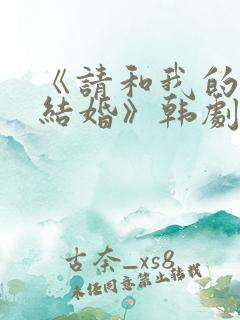 《請和我的
結婚》韩劇
古奈_xs8
未经同意禁止转载